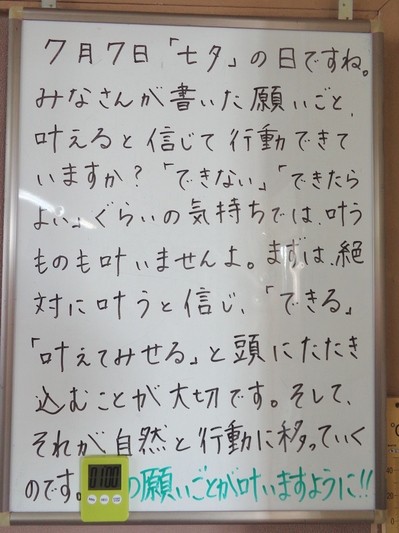 7月7日「七夕」の日ですね。
みなさんが書いた願いごと、
叶えると信じて行動できて
いますか?「できない」「できたら
よい」ぐらいの気持ちでは、叶う
ものも叶いませんよ。まずは、絶
対に叶うと信じ、「できる」
「叶えてみせる」と頭にたたき
込むことが大切です。そして、
それが自然と行動に移っていく
のです。の願いごとが叶いますように!!
0100